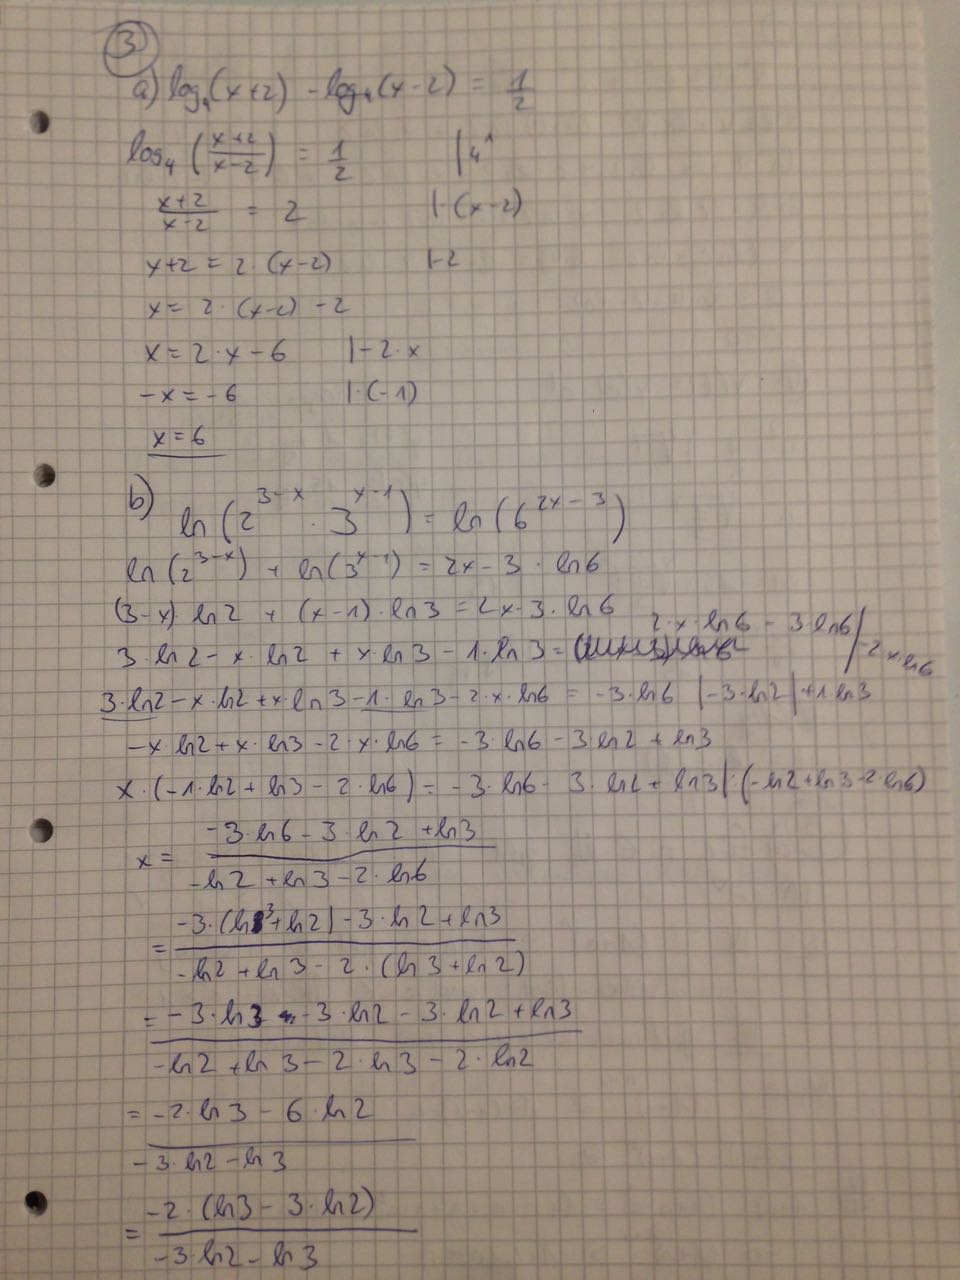 3
a) log₄(x+2) - log₄(x-2) = 1/2
log₄ ((x+2)/(x-2)) = 1/2 | 4^
(x+2)/(x-2) = 2 | ·(x-2)
x+2 = 2·(x-2) | -2
x = 2·(x-2) - 2
x = 2·x - 6 | -2·x
-x = -6 | ·(-1)
x = 6
b) ln(2^(3-x) · 3^(x-1)) = ln(6^(2x-3))
ln(2^(3-x)) + ln(3^(x-1)) = 2x-3 · ln6
(3-x)·ln2 + (x-1)·ln3 = 2x-3·ln6
3·ln2 - x·ln2 + x·ln3 - 1·ln3 = 2·x·ln6 - 3·ln6 | -2·x·ln6
3·ln2 - x·ln2 + x·ln3 - 1·ln3 - 2·x·ln6 = -3·ln6 | -3·ln2 | +1·ln3
-x·ln2 + x·ln3 - 2·x·ln6 = -3·ln6 - 3·ln2 + ln3
x·(-1·ln2 + ln3 - 2·ln6) = -3·ln6 - 3·ln2 + ln3 | :(-ln2 + ln3 - 2·ln6)
x = (-3·ln6 - 3·ln2 + ln3)/(-ln2 + ln3 - 2·ln6)
= (-3·(ln3 + ln2) - 3·ln2 + ln3)/(-ln2 + ln3 - 2·(ln3 + ln2))
= (-3·ln3 - 3·ln2 - 3·ln2 + ln3)/(-ln2 + ln3 - 2·ln3 - 2·ln2)
= (-2·ln3 - 6·ln2)/(-3·ln2 - ln3)
= (-2·(ln3 - 3·ln2))/(-3·ln2 - ln3)